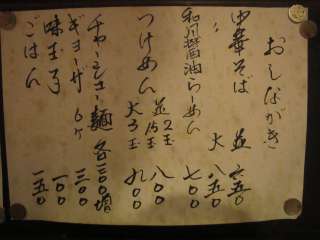 おしながき
中華そば 並 六五〇
〃 大 八五〇
和川醤油らーめん 七〇〇
つけめん 並1.5玉 2玉 八〇〇
大3玉 九〇〇
チャーシュー麺 各三〇〇増
ギョーザ 6ヶ 三〇〇
味玉子 一〇〇
ごはん 一五〇